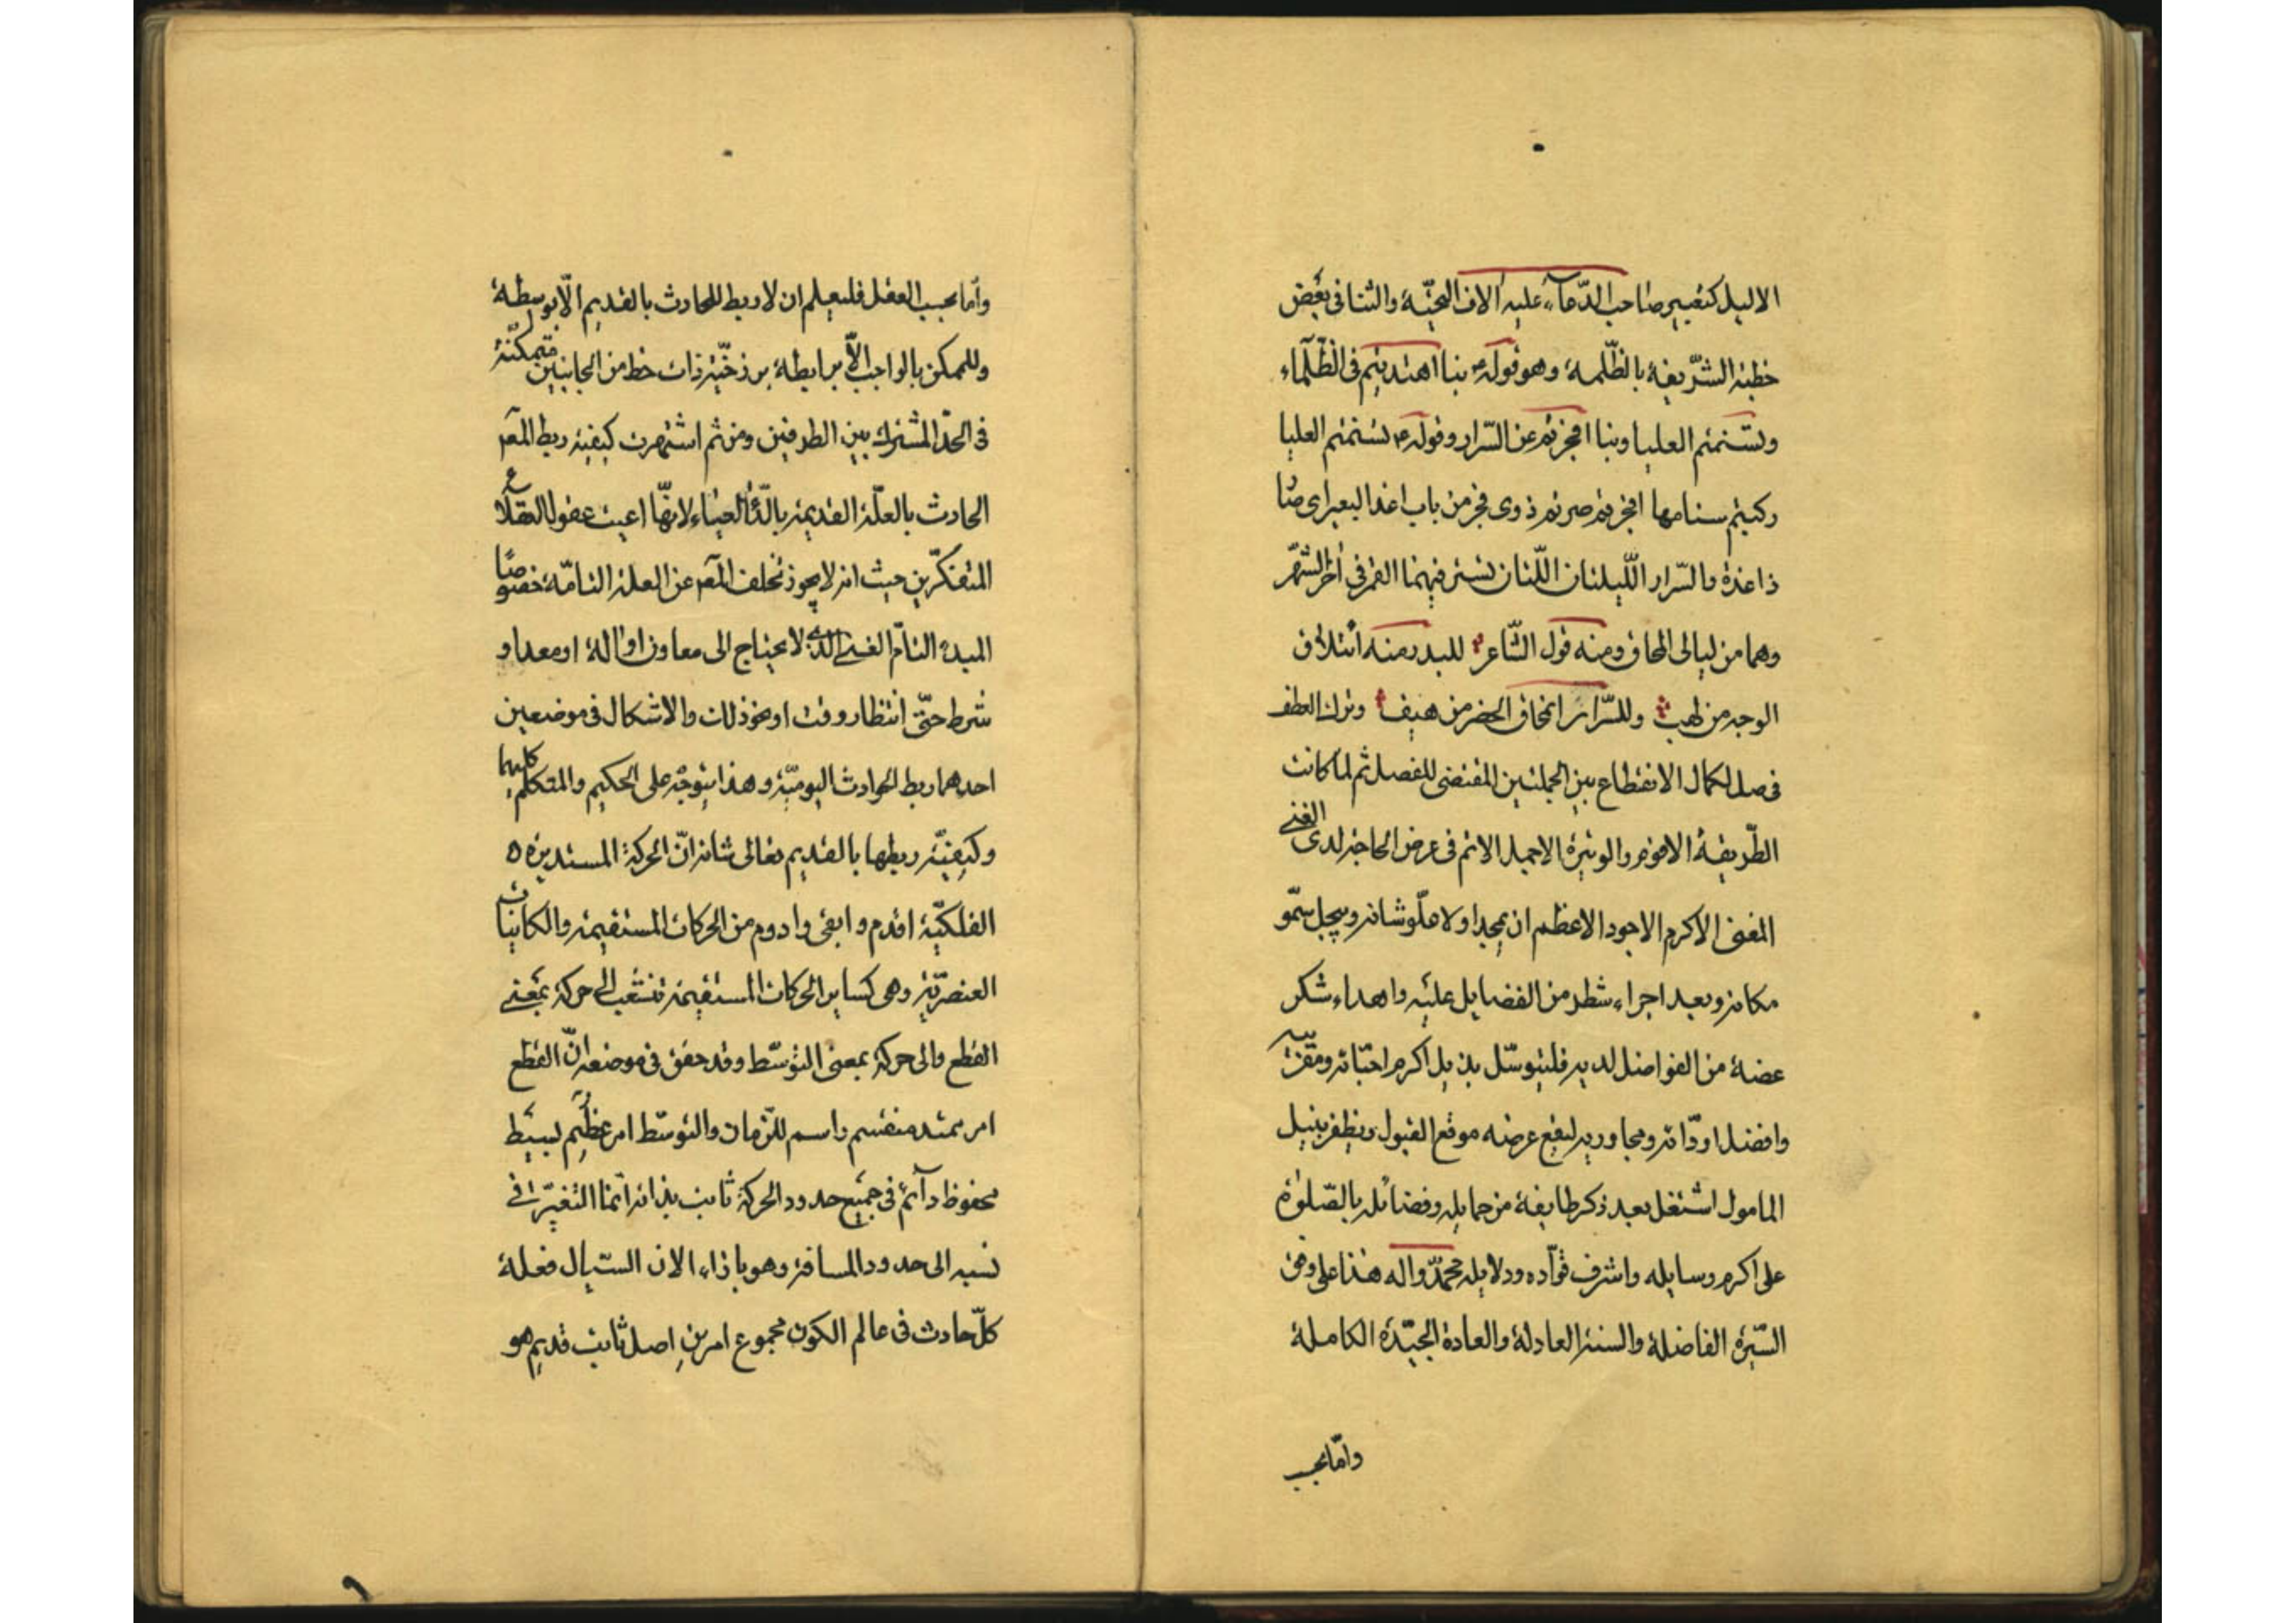 الاليل كتعبير صاحب الدّعاء عليه الاف التحيّة والثنا فى بعض
خطبه الشّريفة بالظّلمة وهو قوله ع بنا اهتديتم فى الظّلماء
وتستّمتم العليا وبنا افجرتم عن السّرار وقوله ع تسنمتم العليا
ركبتم سنامها افجرتم صرتم ذوى فجر من باب اغدا لبعير اى صار
ذا غدة والسّرار اللّيلتان اللّتان تستتر فيهما القمر فى اخر الشهر
وهما من ليالى المحاق ومنه قول الشّاعر للبدر منه ائتلاف
الوجه من لهب وللسّرار انمحاق الخصر من هيف وترك العطف
فصل لكمال الانقطاع بين الجملتين المقتضى للفصل ثم لما كانت
الطّريقة الاقوم والوتيرة الاجمل الاتم فى عرض الحاجة لدى الغنى
المغنى الاكرم الاجود الاعظم ان يمجد اولا علوّ شانه ويبجل سموّ
مكانه وبعد اجراء شطر من الفضايل عليه واهداء شكر
عضة من الفواضل لديه فليتوسّل بذيل اكرم احبّائه ومقرّبيه
وافضل اودّائه ومجاوريه ليقع عرضه موقع القبول ويظفر بنيل
المامول اشتغل بعد ذكر طايفة من جمايله وفضائله بالصّلوة
على اكرم وسايله واشرف قوّاده ودلايله محمّد واله هذا على وفق
السّيرة الفاضلة والسنة العادلة والعادة الجيّدة الكاملة
وامّا بحسب
وأما بحسب العقل فليعلم ان لا ربط للحادث بالقديم الّا بوسيطة
وللممكن بالواجب الّا برابطة برزخيّة ذات حظ من الجانبين متمكنة
فى الحدّ المشترك بين الطرفين ومن ثم اشتهرت كيفية ربط المعلم
الحادث بالعلّة القديمة بالدّاء العياء لانها اعيت عقول العقلاء
المتفكّرين حيث انه لا يجوز تخلف المعلم عن العلة التامّة خصوصًا
المبدء التامّ الغنى الذى لا يحتاج الى معاون او الة او معد او
شرط حتّى انتظار وقت او نحو ذلك والاشكال فى موضعين
احدهما ربط الحوادث اليوميّة وهذا يتوجّه على الحكيم والمتكلم كليهما
وكيفيّة ربطها بالقديم تعالى شانه انّ الحركة المستديرة ه
الفلكيّة اقدم وابقى وادوم من الحركات المستقيمة والكاينات
العنصريّة وهى كساير الحركات المستقيمة تنشعب الى حركة بمعنى
القطع والى حركة بمعنى التوسّط وقد حقق فى موضعه انّ القطع
امر ممتد منقسم راسم للزّمان والتوسّط امر عظيم بسيط
محفوظ دآئم فى جميع حدود الحركة ثابت بذاته انّما التغيّر فى
نسبه الى حدود المسافة وهو بازاء الان السّيال فعلة
كلّ حادث فى عالم الكون مجموع امرين اصل ثابت قديم هو